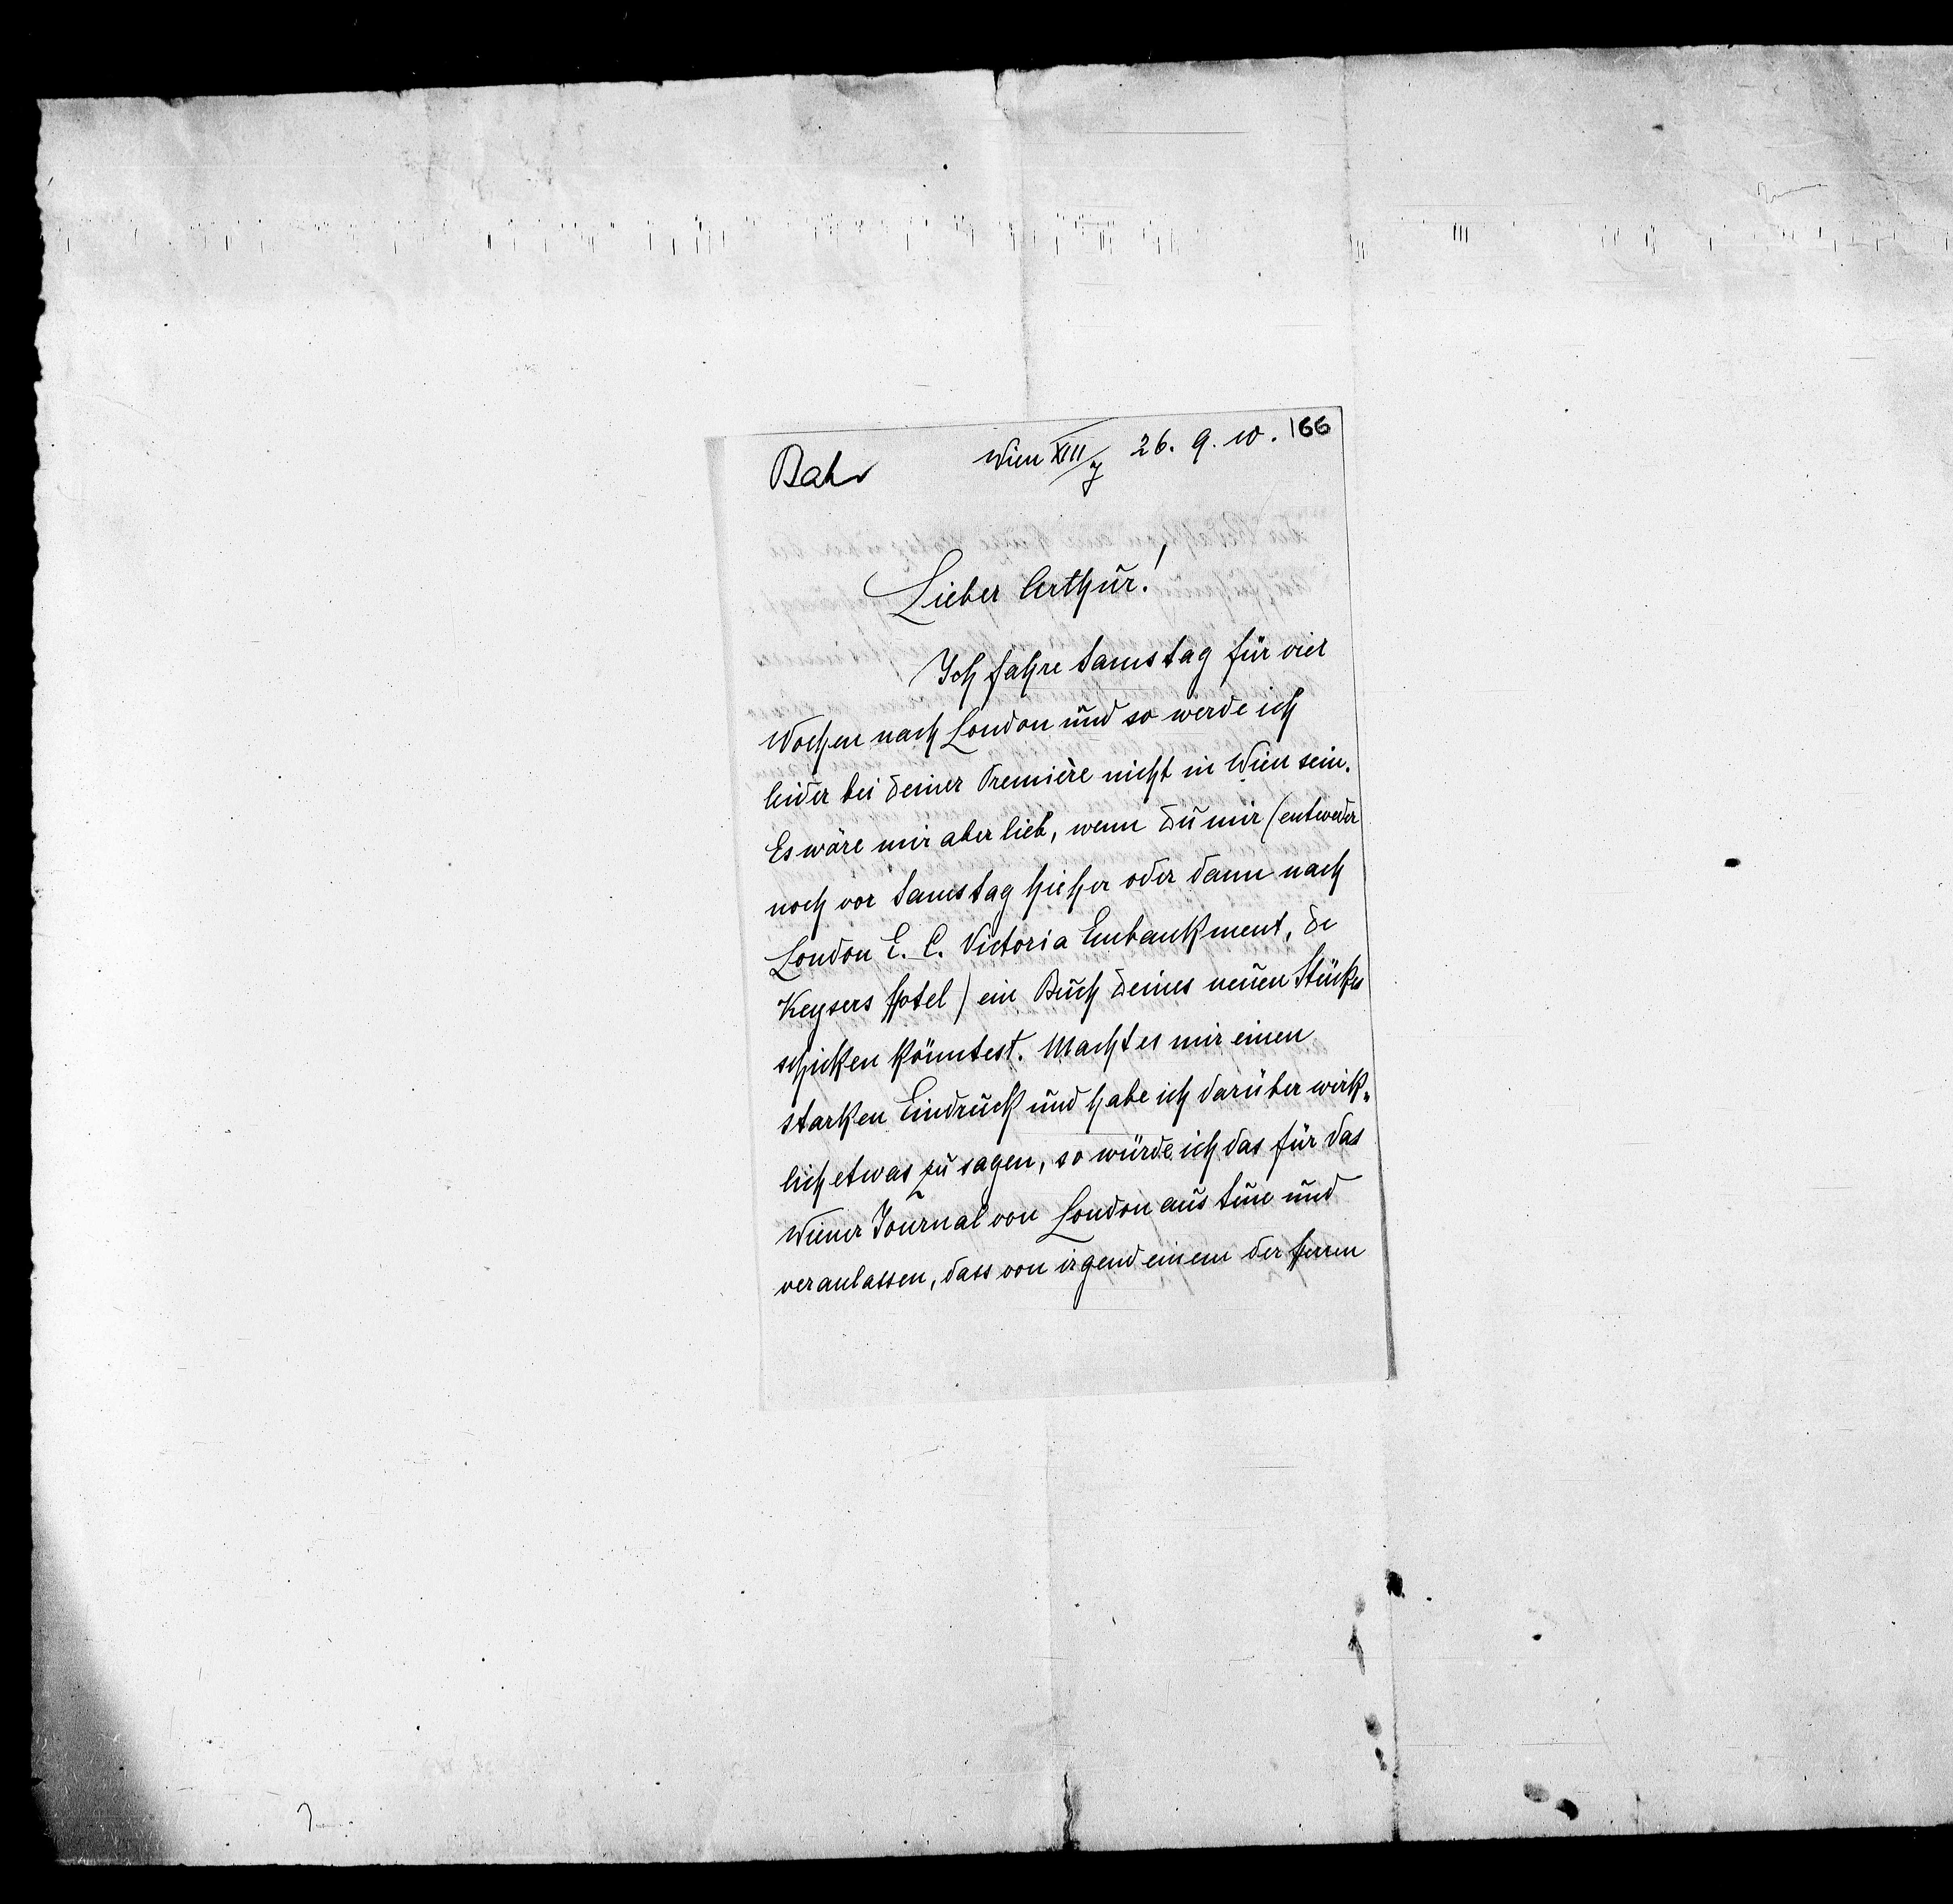 Bahr
Wien XIII/7 26. 9. 10. 166
Lieber Arthur!
Ich fahre Samstag für vier
Wochen nach London und so werde ich
leider bei Deiner Première nicht in Wien sein.
Es wäre mir aber lieb, wenn Du mir (entweder
noch vor Samstag hieher oder dann nach
London E. C. Victoria Embankment, De
Keysers Hotel) ein Buch Deines neuen Stückes
schicken könntest. Macht es mir einen
starken Eindruck und habe ich darüber wirk-
lich etwas zu sagen, so würde ich das für das
Wiener Journal von London aus tun und
veranlassen, dass von irgend einem der Herren